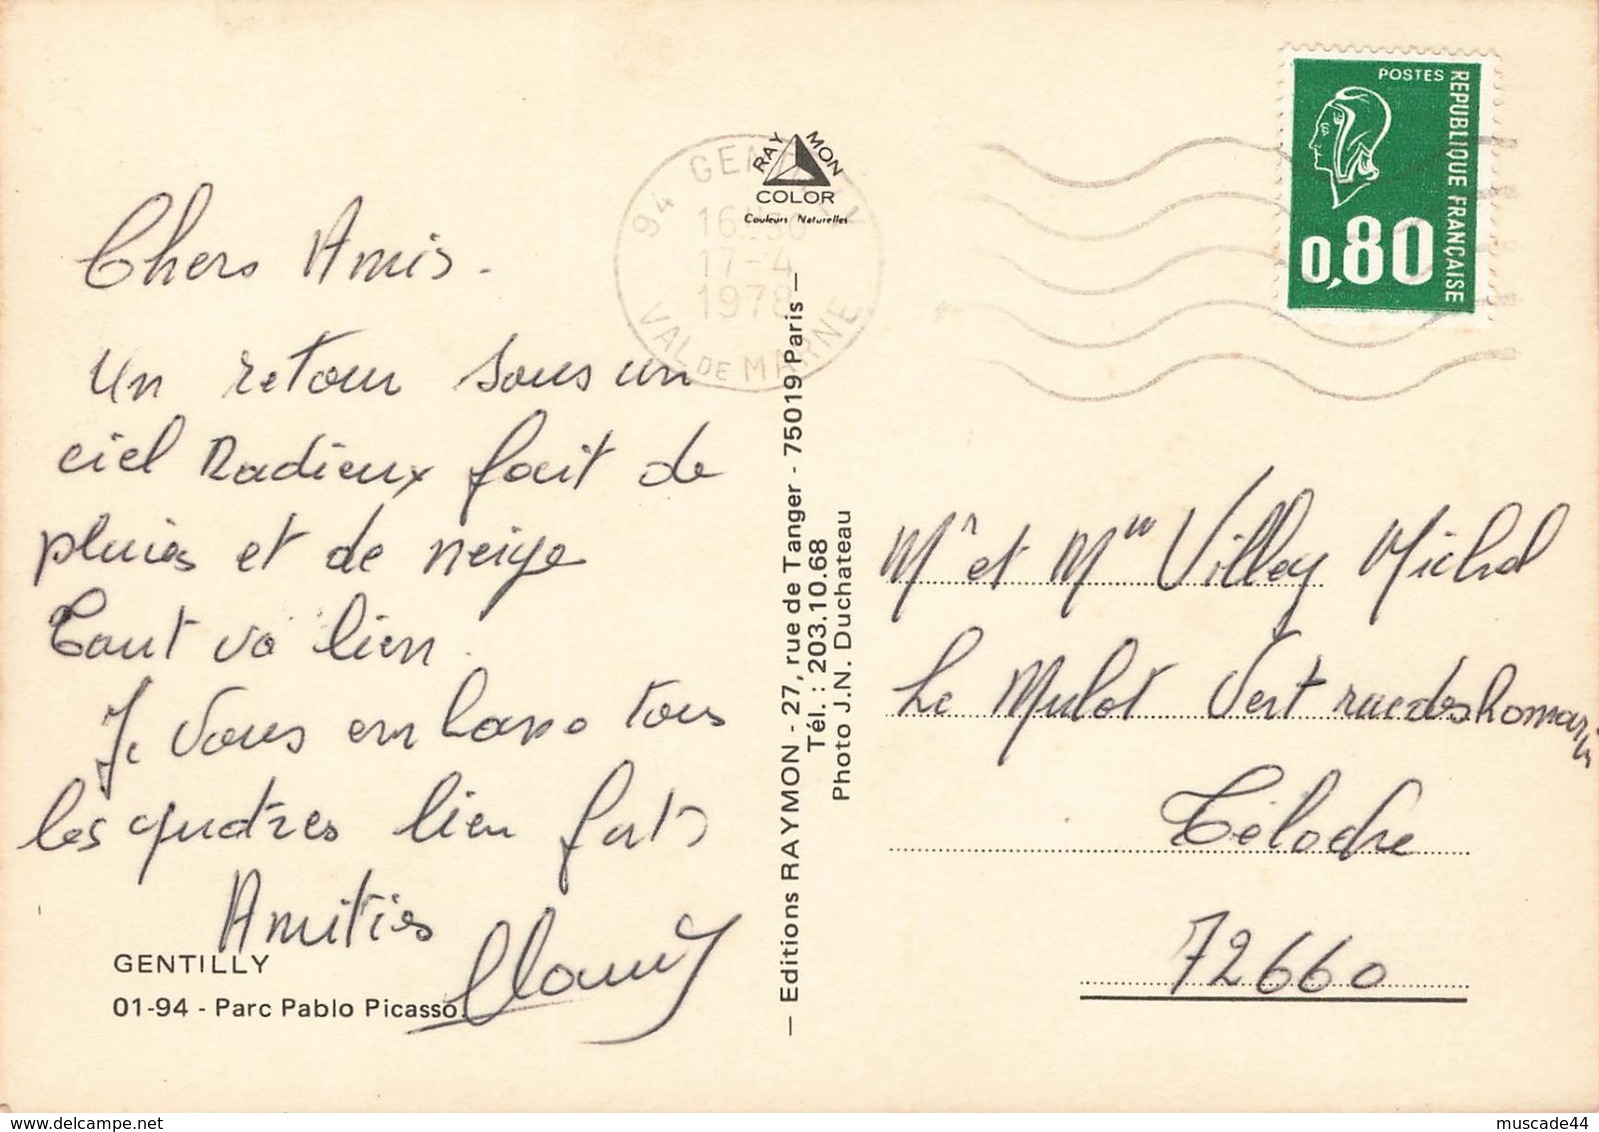 Chers Amis.
Un retour sous un
ciel Radieux fait de
pluies et de neige
Tout va bien.
Je vous embrasse tous
les quatres bien forts
Amitiés
GENTILLY
01-94 - Parc Pablo Picasso.
94 GENTILLY
16H30
17-4
1978
VAL DE MARNE
RAYMON
COLOR
Couleurs Naturelles
— Editions RAYMON - 27, rue de Tanger - 75019 Paris —
Tél. : 203.10.68
Photo J.N. Duchateau
POSTES
REPUBLIQUE FRANÇAISE
0,80
Mr et Mme Villey Michel
Le Mulot Vert rue des
Téloché
72660
muscade44